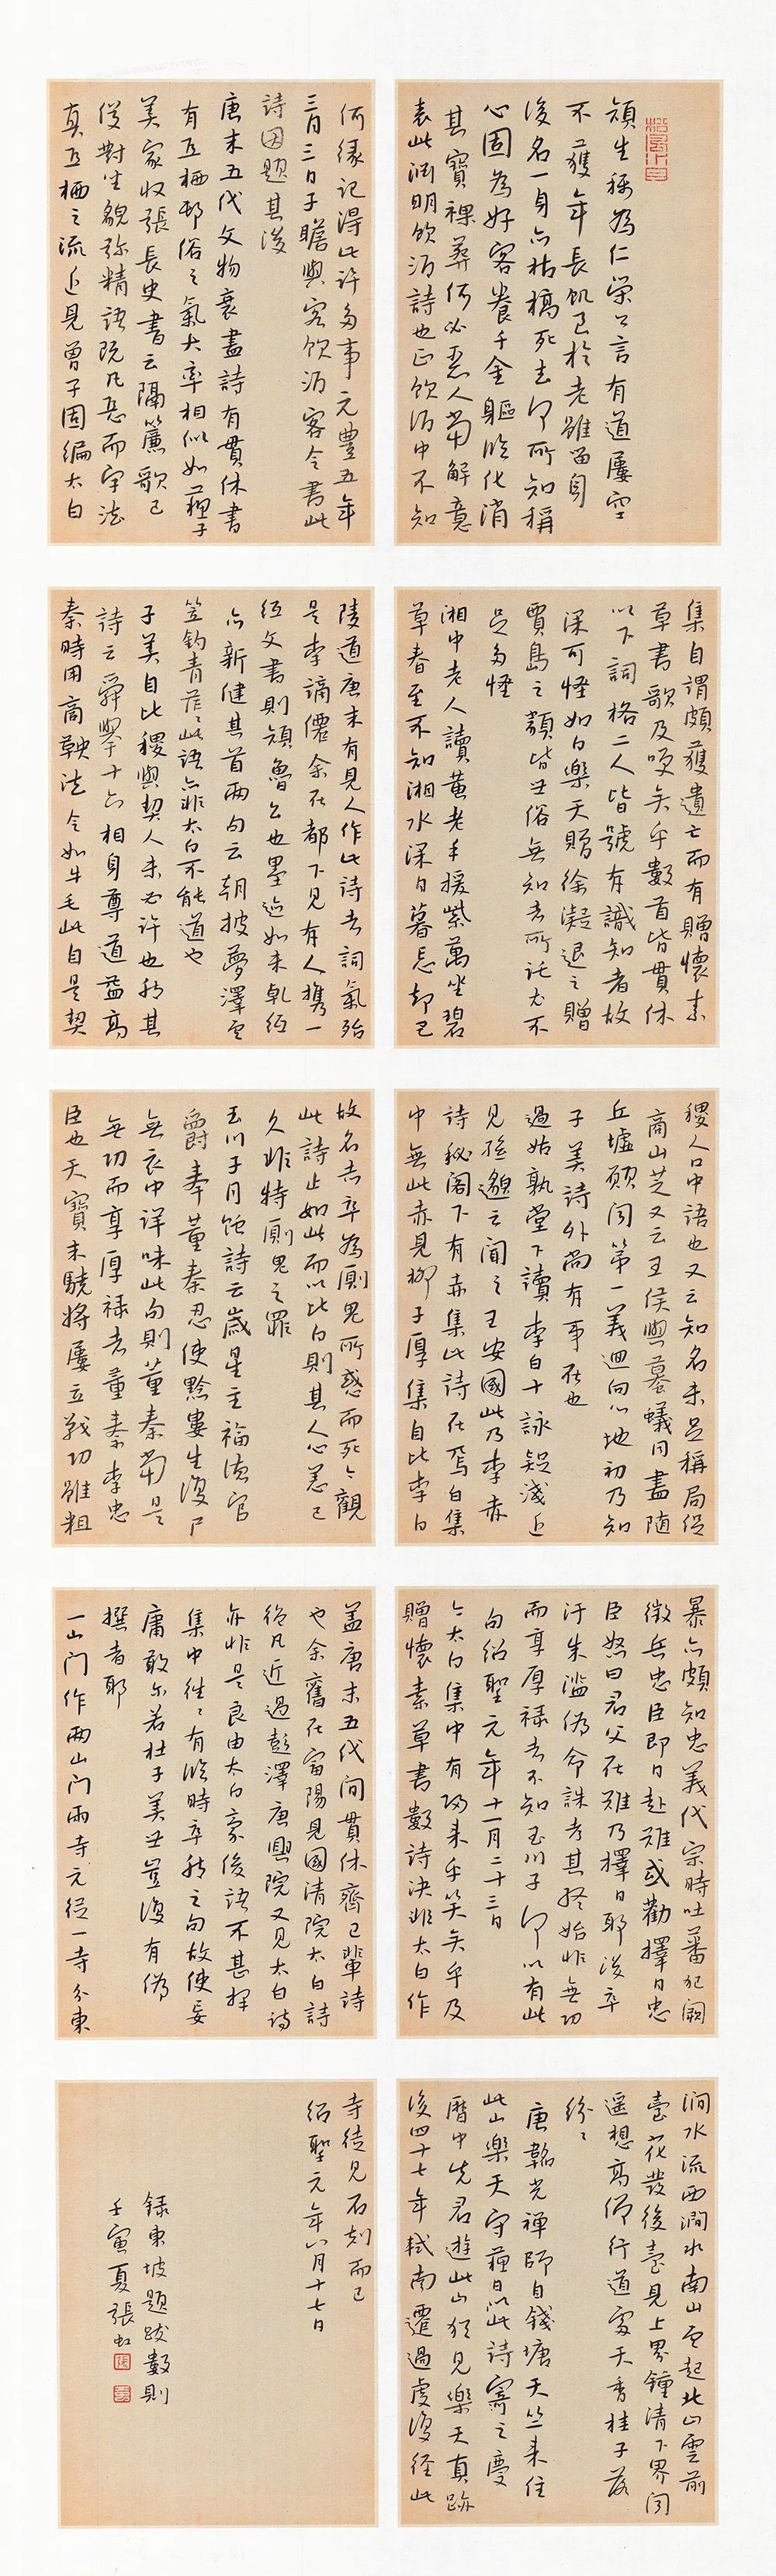 顏生稱為仁榮公言有道屢空
不獲年長飢至於老雖留身
後名一身亦枯槁死去何所知稱
心固為好客養千金軀臨化消
其寶裸葬何必惡人當解意
表此淵明飲酒詩也正飲酒中不知
何緣記得此許多事元豐五年
三月三日子瞻與客飲酒客令書此
詩因題其後
唐末五代文物衰盡詩有貫休書
有亞栖邨俗之氣大率相似如蘇子
美家收張長史書云隔簾歌已
俊對坐貌彌精語既凡惡而字法
真亞栖之流近見曾子固編太白
集自謂頗獲遺亡而有贈懷素
草書歌及哎矣乎數首皆貫休
以下詞格二人皆號有識知者故
深可怪如白樂天贈徐凝退之贈
賈島之類皆世俗無知者所託尤不
足多怪
湘中老人讀黃老手援紫蘽坐碧
草春至不知湘水深日暮忘却巴
陵道唐末有見人作此詩者詞氣殆
是李謫僊余在都下見有人攜一
紙文書則顏魯公也墨迹如未乾紙
亦新健其首兩句云朝披夢澤雲
笠釣青茫茫此語亦非太白不能道也
子美自比稷與契人未必許也然其
詩云舜舉十六相身尊道益高
秦時用商鞅法令如牛毛此自是契
稷人口中語也又云知名未足稱局促
商山芝又云王侯與螻蟻同盡隨
丘墟願聞第一義迴向心地初乃知
子美詩外尚有事在也
過姑孰堂下讀李白十詠疑淺近
見孫邈云聞之王安國此乃李赤
詩秘閣下有赤集此詩在焉白集
中無此赤見柳子厚集自比李白
故名赤卒為厠鬼所惑而死今觀
此詩止如此而以比白則其人心恙已
久非特厠鬼之罪
玉川子月蝕詩云歲星主福德官
爵奉董秦忍使黔婁生覆尸
無衣巾詳味此句則董秦當是
無功而享厚祿者董秦李忠
臣也天寶末驍將屢立戰功雖粗
暴亦頗知忠義代宗時吐蕃犯闕
徵兵忠臣即日赴難或勸擇日忠
臣怒曰君父在難乃擇日耶後卒
汙朱泚偽命誅考其終始非無功
而享厚祿者不知玉川子何以有此
句紹聖元年十一月二十三日
今太白集中有歸來乎笑矣乎及
贈懷素草書數詩決非太白作
蓋唐末五代間貫休齊己輩詩
也余舊在富陽見國清院太白詩
絕凡近過彭澤唐興院又見太白詩
亦非是良由太白豪俊語不甚擇
集中往往有臨時率然之句故使妄
庸敢爾若杜子美世豈復有偽
撰者耶
一山門作兩山門兩寺元從一寺分東
澗水流西澗水南山雲起北山雲前
臺花發後臺見上界鐘清下界聞
遥想高僧行道處天香桂子落
紛紛
唐韜光禪師自錢塘天竺來住
此山樂天守蘇日以此詩寄之慶
曆中先君遊此山猶見樂天真跡
後四十七年軾南遷過虔復經此
寺徒見石刻而已
紹聖元年八月十七日
錄東坡題跋數則
壬寅夏張虹